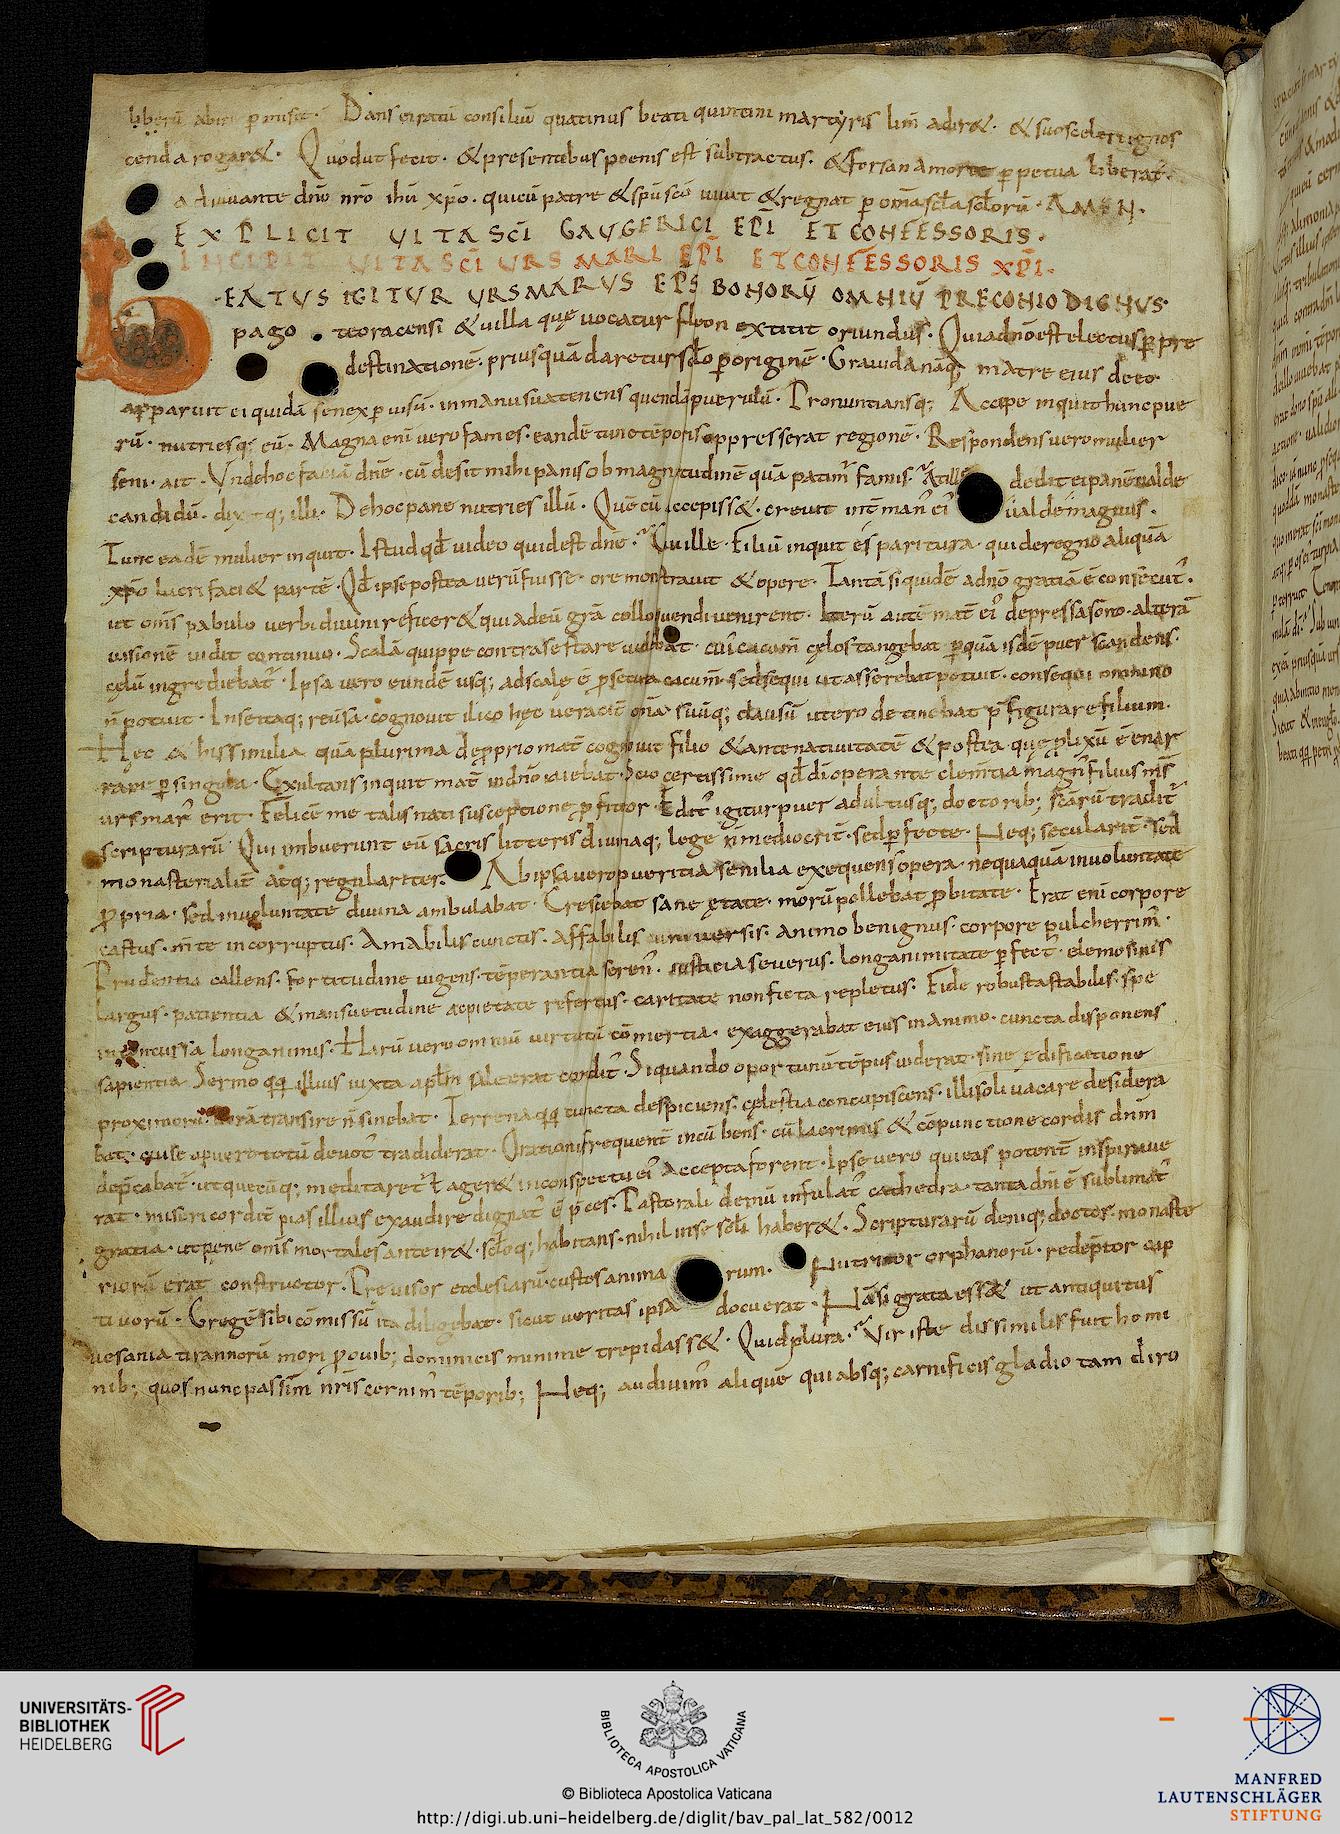 liberū abire pmisit. Dans ei tatū consiliū quatinus beati quintini martyris lim̄ adir&. & suo sceleri ignos
cenda rogar&. Quod ut fecit. & presentibus poenis est subtractus. & forsan a morte ppetua liberat.
adiuuante dn̄o nr̄o ihū xp̄o. qui cū patre & spū sc̄o uiuit & regnat p om̄a scl̄a scl̄orū. AMEN.
EXPLICIT UITA SC̄I GAUGERICI EPĪ ET CONFESSORIS.
INCIPIT UITA SC̄I URSMARI EPĪ ET CONFESSORIS XPĪ.
BEATUS IGITUR URSMARUS EPS BONORŪ OMNIŪ PRECONIO DIGNUS
pago teoracensi & uilla quę uocatur fleon extitit oriundus. Qui a dn̄o est electus p pre
destinationē. priusquā daretur scl̄o p originē. Grauida nāq; matre eius de eo
apparuit ei quidā senex p uisū. in manu sua tenens quendā puerulū. Pronuntiansq; Accipe inquit hunc pue
rū. nutriesq; eū. Magna eni uero fames. eandē tunc tēporis oppresserat regionē. Respondens uero mulier
seni. ait. Unde hoc faciā dn̄e. cū desit mihi panis ob magnitudinē quā patim̄ famis. At ille dedit ei panē ualde
candidū. dixitq; illi. De hoc pane nutries illū. Quē cū accepiss&. creuit int̄ man̄ ei ualde magnus.
Tunc eadē mulier inquit. Istud qd̄ uideo quid est dn̄e. Cui ille. Filiū inquit es paritura. qui de regno aliquā
xp̄o lucrifaci& partē. Qd̄ ipse postea uerū fuisse. ore monstrauit & opere. Tantā siquidē a dn̄o gratiā ē consecut̄.
ut om̄s pabulo uerbi diuini reficer& qui ad eū grā colloquendi uenirent. Iterū autē mat̄ ei depressa sono. alterā
uisionē uidit continuo. Scalā quippe contra se stare uidebat. cui cacum̄ cęlos tangebat p quā isdē puer scandens.
cęlū ingrediebat̄. Ipsa uero eundē usq; ad scalę ē psecuta cacum̄. sed sequi ut asserebat potuit. consequi omnino
n̄ potuit. In se itaq; reuersa. cognouit ilico hęc ueracit̄ om̄a suūq; clausū utero detinebat p̄figurare filium.
Hęc & his similia quā plurima de pprio mat̄ cognouit filio & ante natiuitatē & postea quę plixū ē enar
rare p singula. Exultans inquit mat̄ in dn̄o aiebat. Scio certissime qd̄ dī operante clem̄tia magn̄ filius m̄s
ursmar̄ erit. Felicē me talis nati susceptione pfiteor. Edit̄ igitur puer adultusq; doctorib; scārū tradit̄
scripturarū. Qui imbuerunt eū sacris litteris diuinaq; lege n̄ mediocrit̄. sed pfecte. Neq; secularit̄. sed
monasterialit̄ atq; regulariter. Ab ipsa uero pueritia senilia exequens opera. nequaquā in uoluntate
ppria. sed in uoluntate diuina ambulabat. Crescebat sane ętate. morū pollebat pbitate. Erat eni corpore
castus. m̄te incorruptus. Amabilis cunctis. affabilis uniuersis. animo benignus. corpore pulcherrim̄.
Prudentia callens. fortitudine uigens. tēperantia seren̄. iusticia seuerus. longanimitate pfect̄. elemosinis
largus. patientia & mansuetudine ac pietate refertus. caritate non ficta repletus. Fide robusta stabilis. spe
inconcussa longanimis. Harū uero omniū uirtutū cōmertia. exaggerabat eius in animo. cuncta disponens
sapientia. Sermo qq; illius iuxta aplm̄ sale erat condit̄. Si quando oportunū tēpus uiderat. sine ędificatione
proximorū horā transire n̄ sinebat. Terrena qq; cuncta despiciens. cęlestia concupiscens. illi soli uacare desidera
bat. cui se a puero totū deuot̄ tradiderat. Orationi frequent̄ incūbens. cū lacrimis & cōpunctione cordis dn̄m
dep̄cabat̄. ut quęcūq; meditaret̄ t̄ ager& in conspectu ei accepta forent. Ipse uero qui eas potent̄ inspiraue
rat. misericordit̄ pias illius exaudire dignat̄ ē p̄ces. Pastorali demū infulat̄ cathedra. tanta dn̄i ē sublimat̄
gratia. ut pene om̄s mortales anteir&. scl̄oq; habitans. nihil in se scl̄i haber&. Scripturarū deniq; doctor. monaste
riorū erat constructor. Preuisor ecclesiarū. custos animarum. Nutritor orphanorū. redēptor cap
tiuorū. Gregē sibi cōmissū ita diligebat. sicut ueritas ipsa docuerat. Nā si grata ess& ut antiquitus
uesania tirannorū mori p ouib; dominicis minime trepidass&. Quid plura. Vir iste dissimilis fuit homi
nib; quos nunc passim n̄ris cernim̄ tēporib; Neq; audiuim̄ aliquē qui absq; carnificis gladio tam diro
UNIVERSITÄTS-
BIBLIOTHEK
HEIDELBERG
BIBLIOTECA APOSTOLICA VATICANA
© Biblioteca Apostolica Vaticana
http://digi.ub.uni-heidelberg.de/diglit/bav_pal_lat_582/0012
MANFRED
LAUTENSCHLÄGER
STIFTUNG